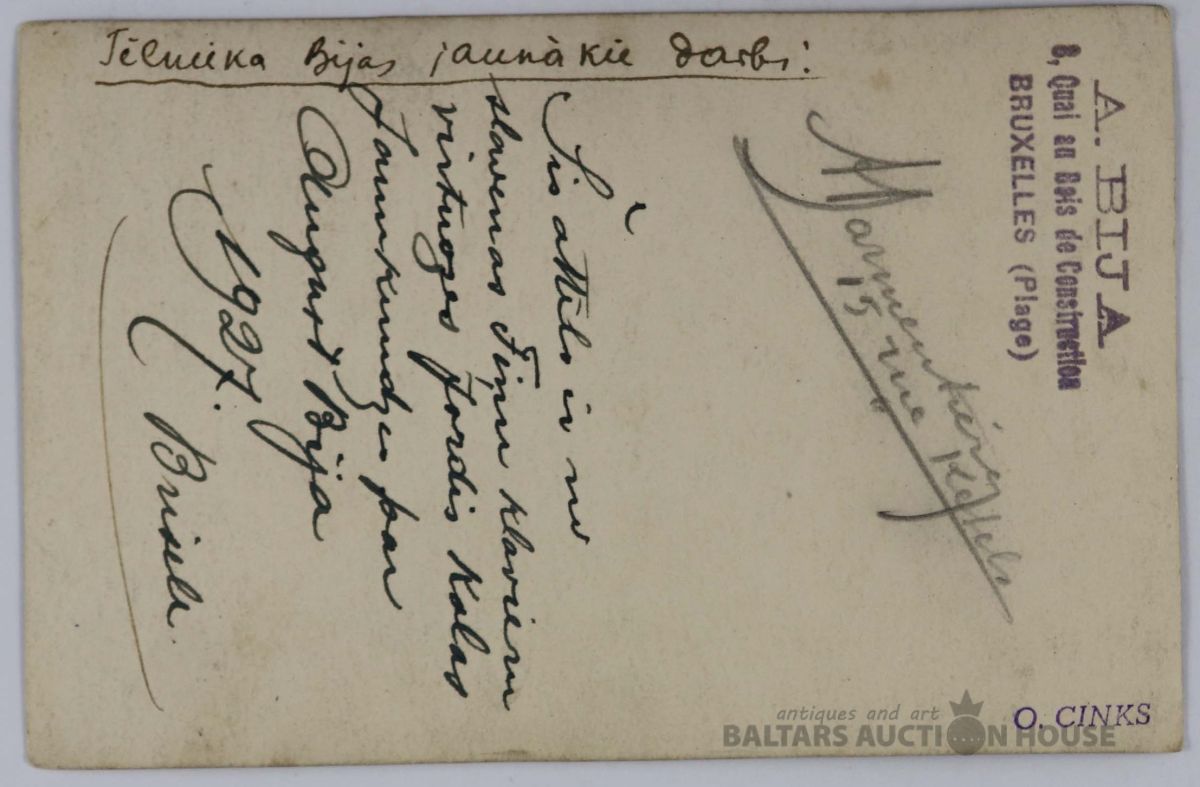 Tēlnieka Bijas jaunākie darbi:
A. BIJA
8, Quai au Bois de Construction
BRUXELLES (Plage)
15 rue
Šis attēls ir no
slavenas Fiņu klavieru
virtuozes Jordis Kalas
Jaunkundzes par
August Bija
1927. Brisele.
O. CINKS
antiques and art
BALTARS AUCTION HOUSE